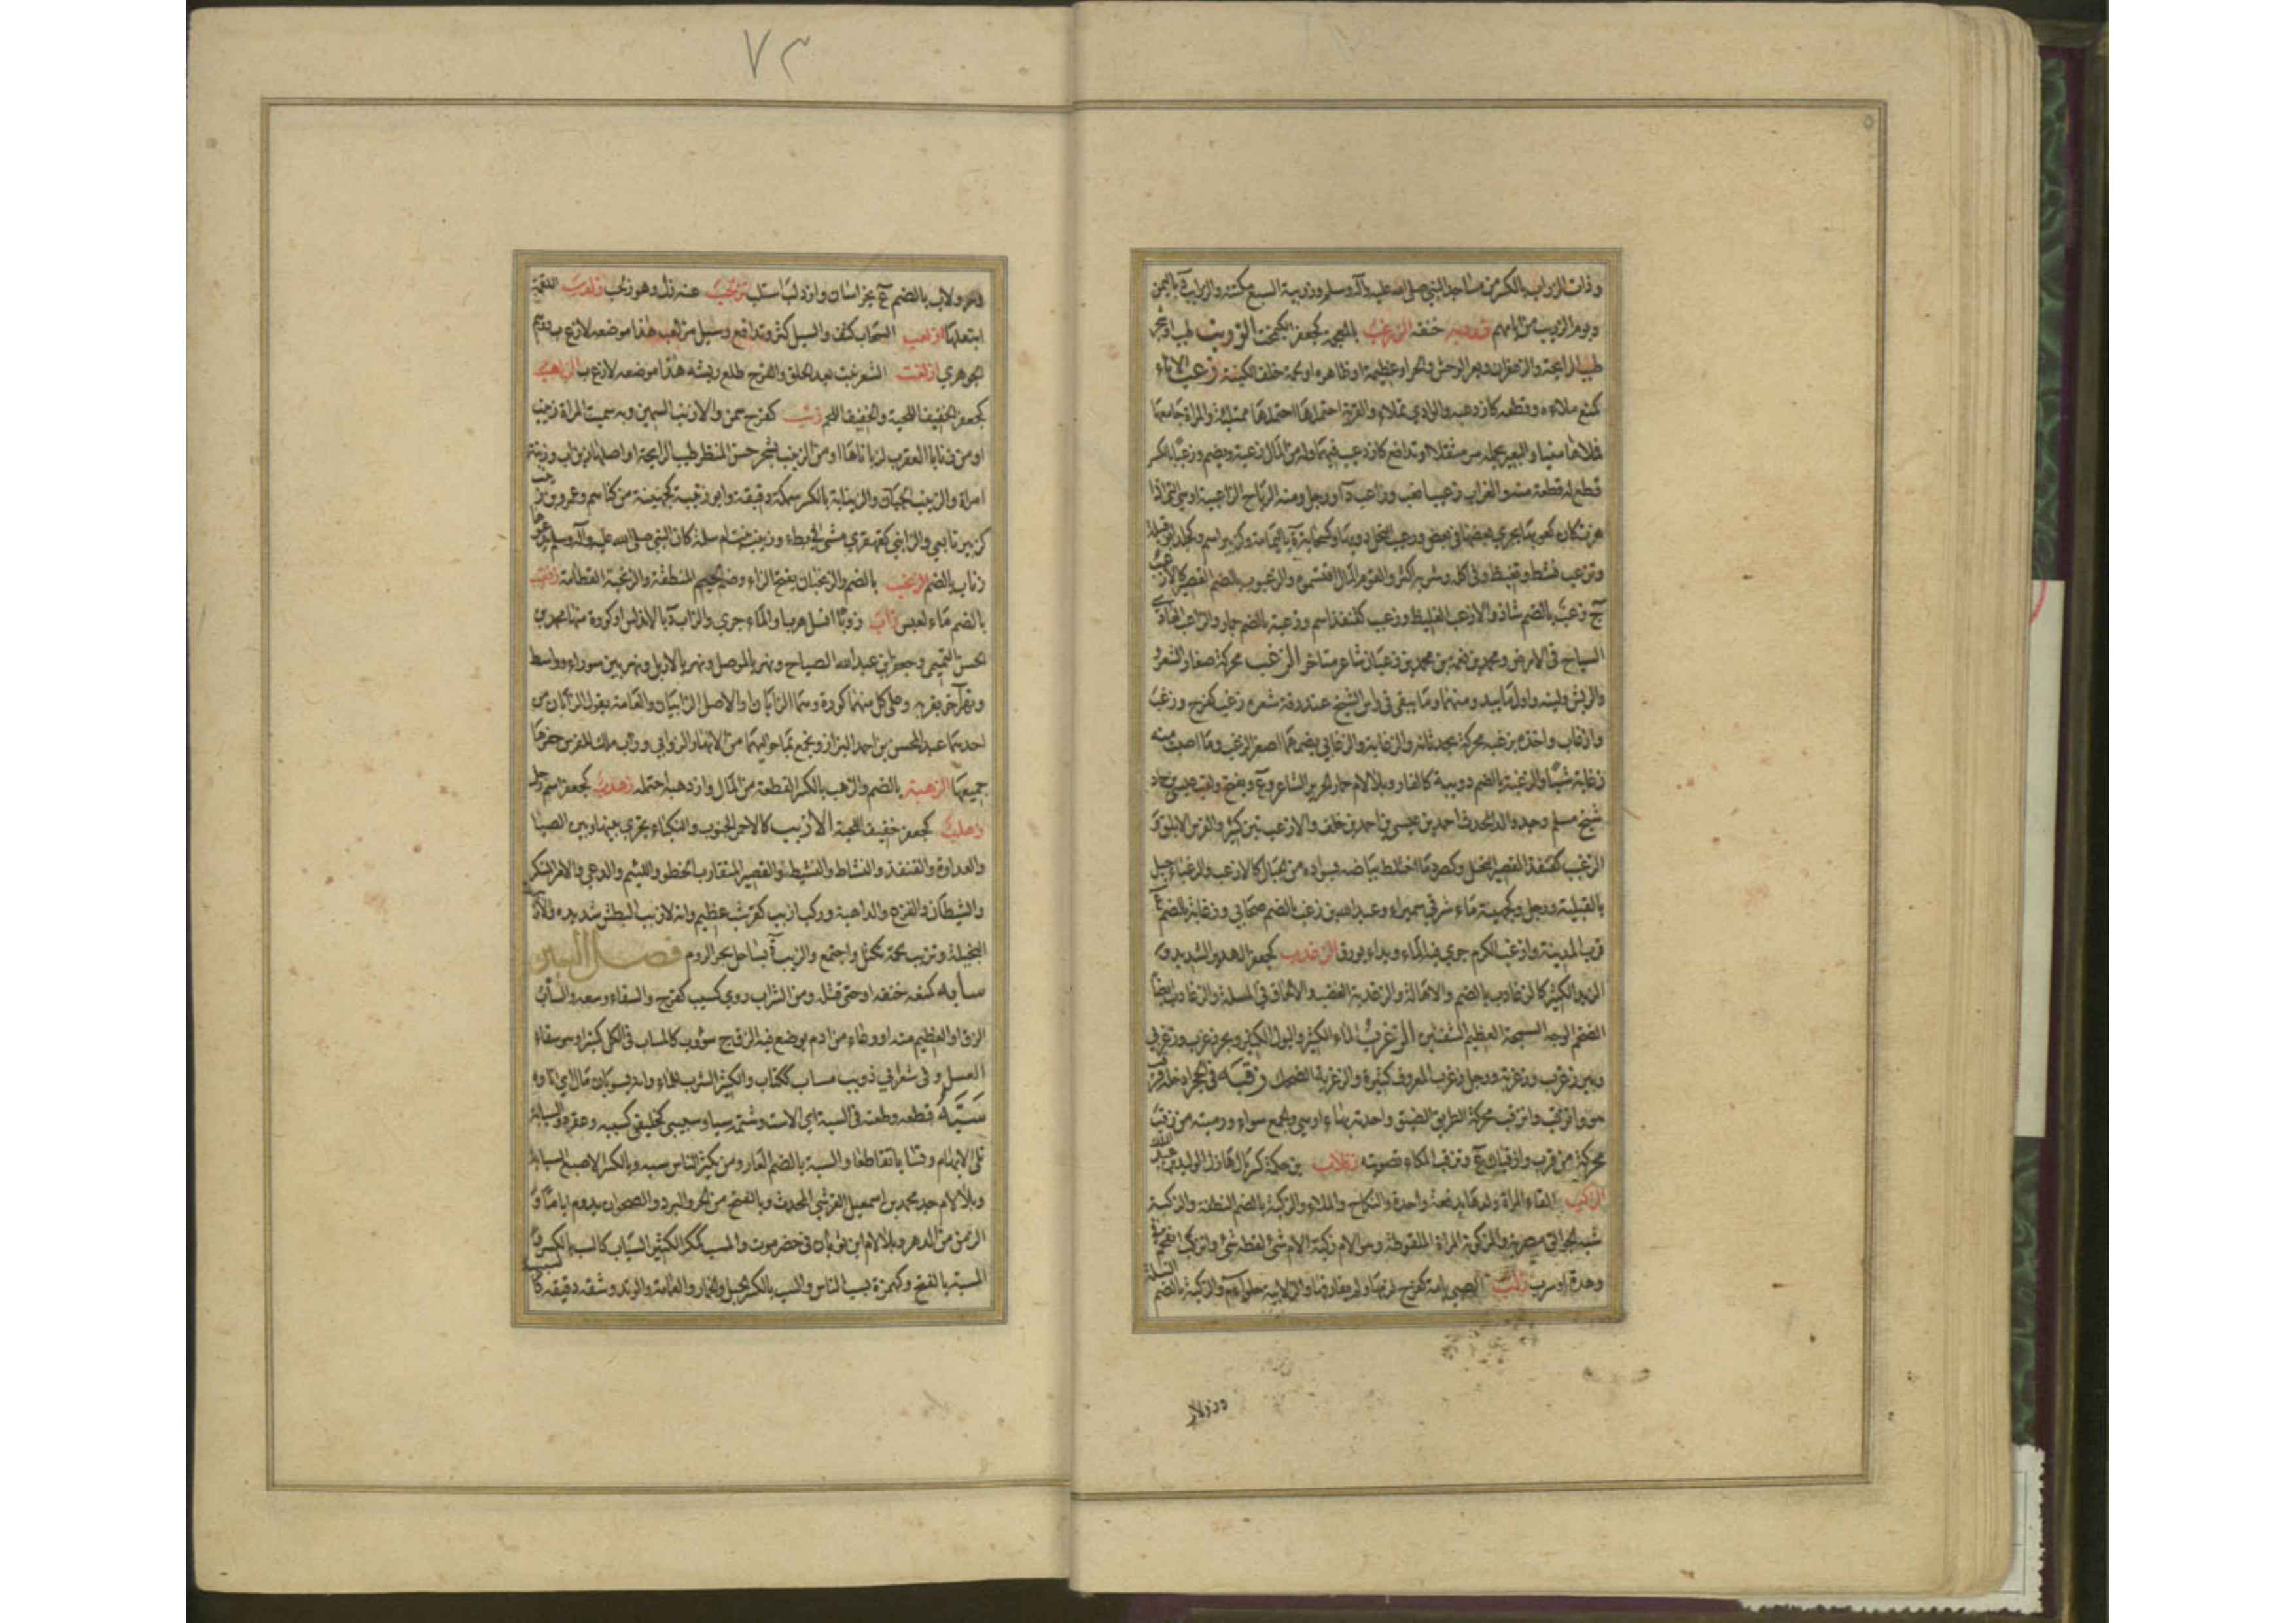 وذات الزراب بالكسر من مساجد النبي صلى الله عليه وآله وسلم وزريبة السبع مكتنه والزرابة باليمن
ويوم الزريب من ايامهم زردبه خنقه الزرغب بالمعجمة كجعفر الكيمخت الزرنب طيب او شجر
طيب الرائحة والزعفران وبعر الوحش والحر او عظيمه او ظاهره او لحمة خلف الكينة زعب الاناء
كمنع ملاءه وقطعه كازدعبه والوادي تملاء والقربة احتملها احتملها ممتلئة والمراة جامعها
فملاها منيا والبعير بحمله مر مثقلا او تدافع كازدعب فيهما وله من المال زعبة ويضم وزعبا بالكسر
قطع له قطعة منه والغراب زعيبا نعب وزاعب د او رجل ومنه الرماح الزاعبية او هي التي اذا
هزت كان كعوبها يجري بعضها في بعض وزعيب النحل دويها
وتزعب نشط وتغيظ وفي اكله وشربه اكثر والقوم المال اقتسموه والزعبوب بالضم القصير كالازعب
ج زعب بالضم شاذ والازعب الغليظ وزعب كقنفذ اسم وزعبة بالضم حمار والزاعب الهادي
السياح في الارض ومحمد بن نعمة بن محمد بن زعبان شاعر متاخر الزغب محركة صغار الشعر و
الريش ولينه واول ما يبدو منهما وما يبقى في راس الشيخ عند رقة شعره زغب كفرح وزغب
وازغاب واخذه بزغبه محركة بحدثانه والزغابة والزغابى بضمهما اصغر الزغب وما اصبت منه
زغابة شيئا والزغبة بالضم دويبة كالفار وبلا لام حمار لجرير الشاعر وع ويفتح ولقب عيسى بن حماد
شيخ مسلم وجد والد المحدث احمد بن عيسى بن احمد بن خلف والازغب تين كبير والفرس الابلق و
الزغب كقنفذ القصير البخيل وكصرد ما اختلط بياضه بسواده من الحبال كالازغب والزغباء جبل
بالقبلية ورجل وكجهينة ماء شرقي سميراء وعبد الله بن زغب بالضم صحابي وزغابة بالضم ع
قرب المدينة وازغب الكرم جرى فيه الماء وبدا يورق الزغدب كجعفر الهدير الشديد و
الزبد الكثير كالزغادب بالضم والاهالة والزغدبة الغضب والالحاف في المسئلة والزغادب ايضا
الضخم الوجه السمجه العظيم الشفتين الزغرب الماء الكثير والبول الكثير وبحر زغرب وزغربي
وبير زغرب وزغربة ورجل زغرب المعروف كثيره والزغربة الضحك زقبه في الجحر ادخله فزقب
هو وانزقب والزقب محركة الطريق الضيق واحدته بهاء او هي والجمع سواء ورميته من زقب
محركة من قرب وازقبان ع وتزقيب المكاء تصويته زقلاب بن حكمة كسربال هازل الوليد بن عبد الله
الزكب القاء المراة ولدها بدفعة واحدة والنكاح والملاء والزكبة بالضم النطفة والزكيبة
شبه الجوالق مصرية والمزكوبة المراة الملقوطة وهو الام زكبة الام شئ لفظه شئ وانزكب انقحم في
وهدة او سرب زلب الصبي بامه كفرح لزمها ولم يفارقها والزلابية حلواء م والزلبة بالضم النسلة
وزولاب
٧٣
وزولاب بالضم ع بخراسان وازدلب استلب تزلحب عنه زل وهو زلحب زلدب اللقمة
ابتلعها ازلعب السحاب كثف والسيل كثر وتدافع وسيل مزلعب هذا موضعه لا زعب ووهم
الجوهري ازلغب الشعر نبت بعد الحلق والفرخ طلع ريشه هذا موضعه لا زغب الزلهب
كجعفر الخفيف اللحية والخفيف اللحم زنب كفرح سمن والازنب السمين وبه سميت المراة زينب
او من زنابى العقرب لزباناها او من الزينب لشجر حسن المنظر طيب الرائحة او اصلها زين اب وزينة
امراة والزينب الجبان والزينابة بالكسر سمكة دقيقة وابو زنيبة كجهينة من كناهم وعمرو بن زنيب
كزبير تابعي والزانبى كقهقرى مشي في بطء وزينب بنت ام سلمة كان النبي صلى الله عليه وآله وسلم يدعوها
زناب بالضم الزنجب بالضم والزنجبان بفتح الزاء وضم الجيم المنطقة والزنجبة العظامة زنقب
بالضم ماء لعبس زاب زوبا انسل هربا والماء جرى والزاب د بالاندلس او كورة منها محمد بن
الحسن التميمي وجعفر بن عبد الله الصباح ونهر بالموصل ونهر بالاربل ونهر بين سوراء وواسط
ونهر آخر بقربه وعلى كل منهما كورة وهما الزابان والاصل الزابيان والعامة يقول الزابان من
احديهما عبد المحسن بن احمد البزاز ويجمع بما حواليهما من الانهار الزوابي وزاب ملك للفرس حفرها
جميعها الزهبة بالضم والزهب بالكسر القطعة من المال وازدهبه احتمله زهدب كجعفر اسم رجل
زهلب كجعفر خفيف اللحية الازيب كالاحمر الجنوب والنكباء تجري بينها وبين الصبا
والعداوة والقنفذ والنشاط والنشيط والقصير المتقارب الخطو واللئيم والدعي والامر المنكر
والشيطان والفزع والداهية وركب ازيب كقرشب عظيم وانه لازيب البطش شديده والازيبة
البخيلة وتزيب لحمه تكتل واجتمع والزيب ة بساحل بحر الروم فصل السين
سابه كمنعه خنقه او حتى قتله ومن الشراب روى كسئب كفرح والسقاء وسعه والساب
الزق او العظيم منه او وعاء من ادم يوضع فيه الزق ج سؤوب كالمساب في الكل كمنبر او هو سقاء
العسل وفي شعر ابي ذويب مساب ككتاب والكثير الشرب للماء وانه لسوبان مال اي ازاؤه
سبه قطعه وطعنه في السبة اي الاست وشتمه سبا وسبيبى كخليفى كسببه وعقره والسبابة
تلي الابهام وتسابا تقاطعا والسبة بالضم العار ومن يكثر الناس سبه وبالكسر الاصبع السبابة
وبلا لام جد محمد بن اسمعيل القرشي المحدث وبالفتح من الحر والبرد والصحو ان يدوم اياما و
الزمن من الدهر وبلا لام ابن ثوبان في حضرموت والمسب كمكر الكثير السباب كالسب بالكسر و
المسبة بالفتح وكهمزة يسب الناس والسب بالكسر الحبل والخمار والعمامة والوتد وشقة دقيقة كا
لسبيبة